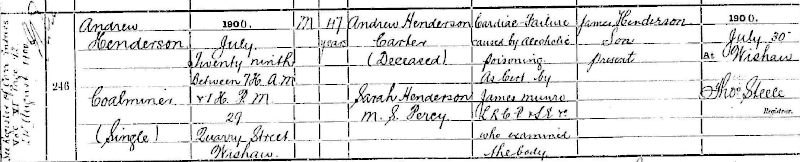 246
Andrew
Henderson
Coalminer
(Single)
1900.
July
Twenty ninth
Between 7 H. A M
& 1 H. P. M
29
Quarry Street
Wishaw.
M
47
years
Andrew Henderson
Carter
(Deceased)
Sarah Henderson
M. S. Percy
Cardiac Failure
caused by alcoholic
poisoning
As Cert by
James Munro
who examined
the body
James Henderson
Son
present
1900.
July 30
At Wishaw
Thos Steele
Registrar.